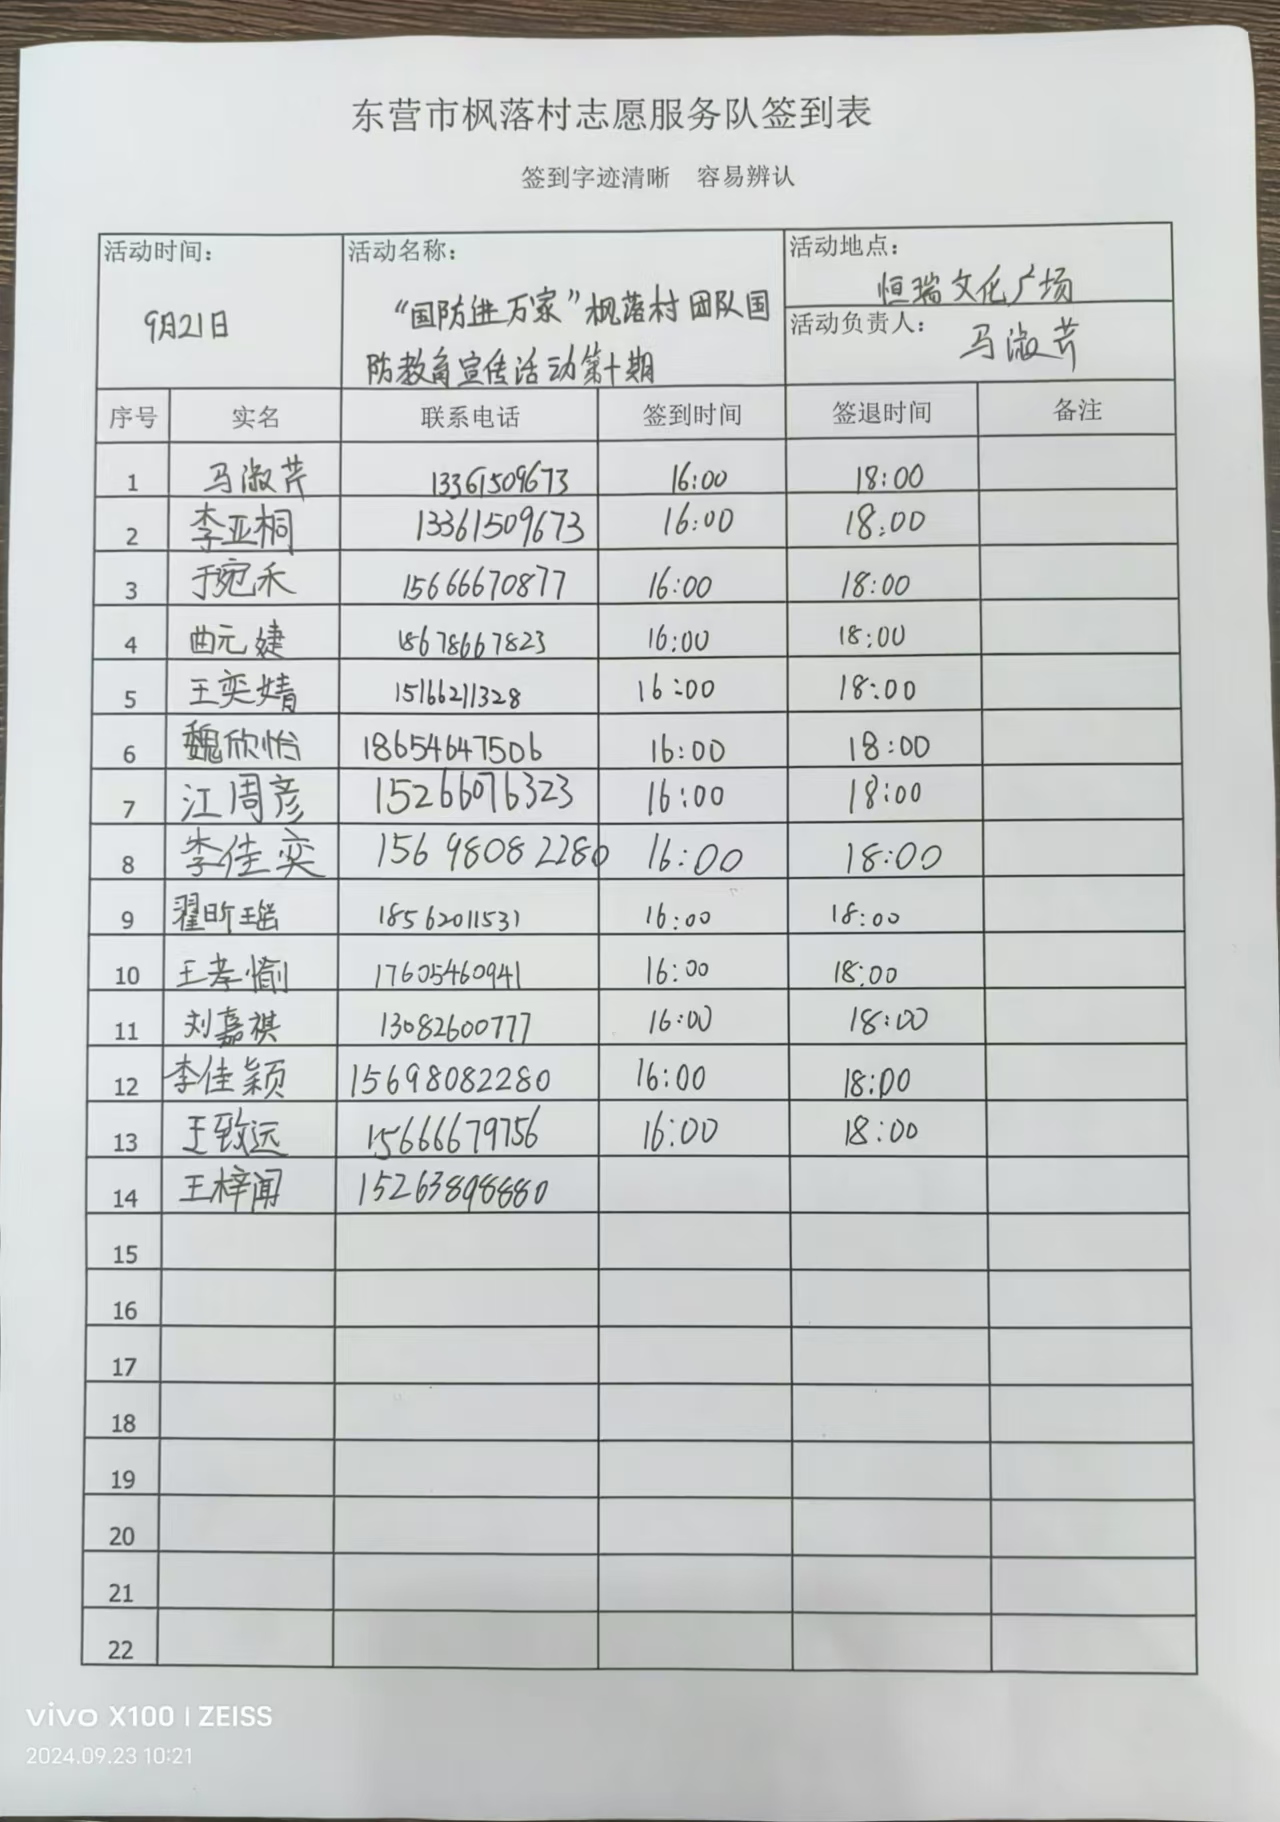 东营市枫落村志愿服务队签到表
签到字迹清晰 容易辨认
活动时间：
9月21日
活动名称：
“国防进万家”枫落村团队国
防教育宣传活动第十期
活动地点：
恒瑞文化广场
活动负责人：
马淑芹
序号 实名 联系电话 签到时间 签退时间 备注
1 马淑芹 13361509673 16:00 18:00
2 李亚桐 13361509673 16:00 18:00
3 于宛禾 15666670877 16:00 18:00
4 曲元婕 18678667823 16:00 18:00
5 王奕婧 15166211328 16:00 18:00
6 魏欣怡 18654647506 16:00 18:00
7 江周彦 15266076323 16:00 18:00
8 李佳奕 15698082280 16:00 18:00
9 翟昕瑶 18562011531 16:00 18:00
10 王孝愉 17605460941 16:00 18:00
11 刘嘉祺 13082600777 16:00 18:00
12 李佳颖 15698082280 16:00 18:00
13 王致远 15666679756 16:00 18:00
14 王梓闻 15263898880
15
16
17
18
19
20
21
22
vivo X100 | ZEISS
2024.09.23 10:21